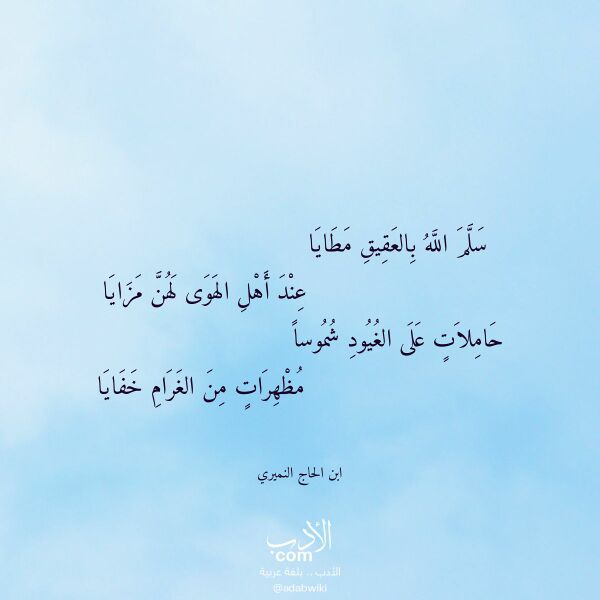 سَلَّمَ اللَّهُ بِالعَقِيقِ مَطَايَا
عِنْدَ أَهْلِ الهَوَى لَهُنَّ مَزَايَا
حَامِلاَتٍ عَلَى الغُيُودِ شُمُوساً
مُظْهِرَاتٍ مِنَ الغَرَامِ خَفَايَا
ابن الحاج النميري
الأدب
com
الأدب .. بلغة عربية
@adabwiki